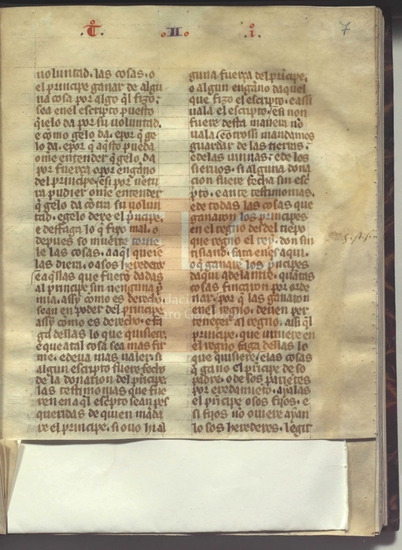 .T. .II. .I. 7
uoluntad. las cosas. o
el principe ganar de algu
na cosa por algo q̃l fizo.
sea en el escripto puesto
q̃ gelo da por su uoluntad.
e como gelo da. e por q̃ ge
lo da. e por q̃ aq̃sto pueda
ome entender q̃ gelo da
por fuerça o por enganno
del principe. e si por uentu
ra pudier ome entender
q̃ gelo da contra su uolun
tad. e gelo dexe el principe.
e desfaga lo q̃ fizo mal. o
depues de so muerte torne
le las cosas. a aq̃l que ie
las diera. o a sos herederos
e aq̃llas que fueron dadas
al principe sin nenguna p̃
mia. assy como es derecho.
sean en poder del principe
assy como es derecho. e fa
ga dellas lo que quisiere.
e que atal cosa sea mas fir
me. e deua mas ualer. si
algun escripto fuere fecho
de la donation del principe.
las testimonias que fue
ren en aq̃l escripto sean pes
queridas de quien manda
re el principe. si ouo hi al
guna fuerça del principe.
o algun enganno daquel
que fizo el escripto. e assi
uala el escripto. e si non
fuere desta manera no
uala. e otrossi mandamos
guardar de las tierras.
e de las uinnas. e de los
sieruos. si alguna dona
cion fuere fecha sin esc
pto. e ante testimonias.
e de todas las cosas que
ganaron los principes
en el regno desdel tiepo
que regno el rey. don sin
tisiand. fata en es aqui.
o q̃ ganare los principes
daqui adelantre. quantas
cosas fincaron por orde
nar. por q̃ las ganaron
en el regno. deuen per
tenecer al regno. assi q̃l
principe. que uiniere en
el regno faga dellas lo
que quisiere. e las cosas
q̃ gano el principe de so
padre. o de sos parientes
por eredamiento. ayalas
el principe o sos fijos. e
si fijos no ouiere ayan
lo sos herederos. legit